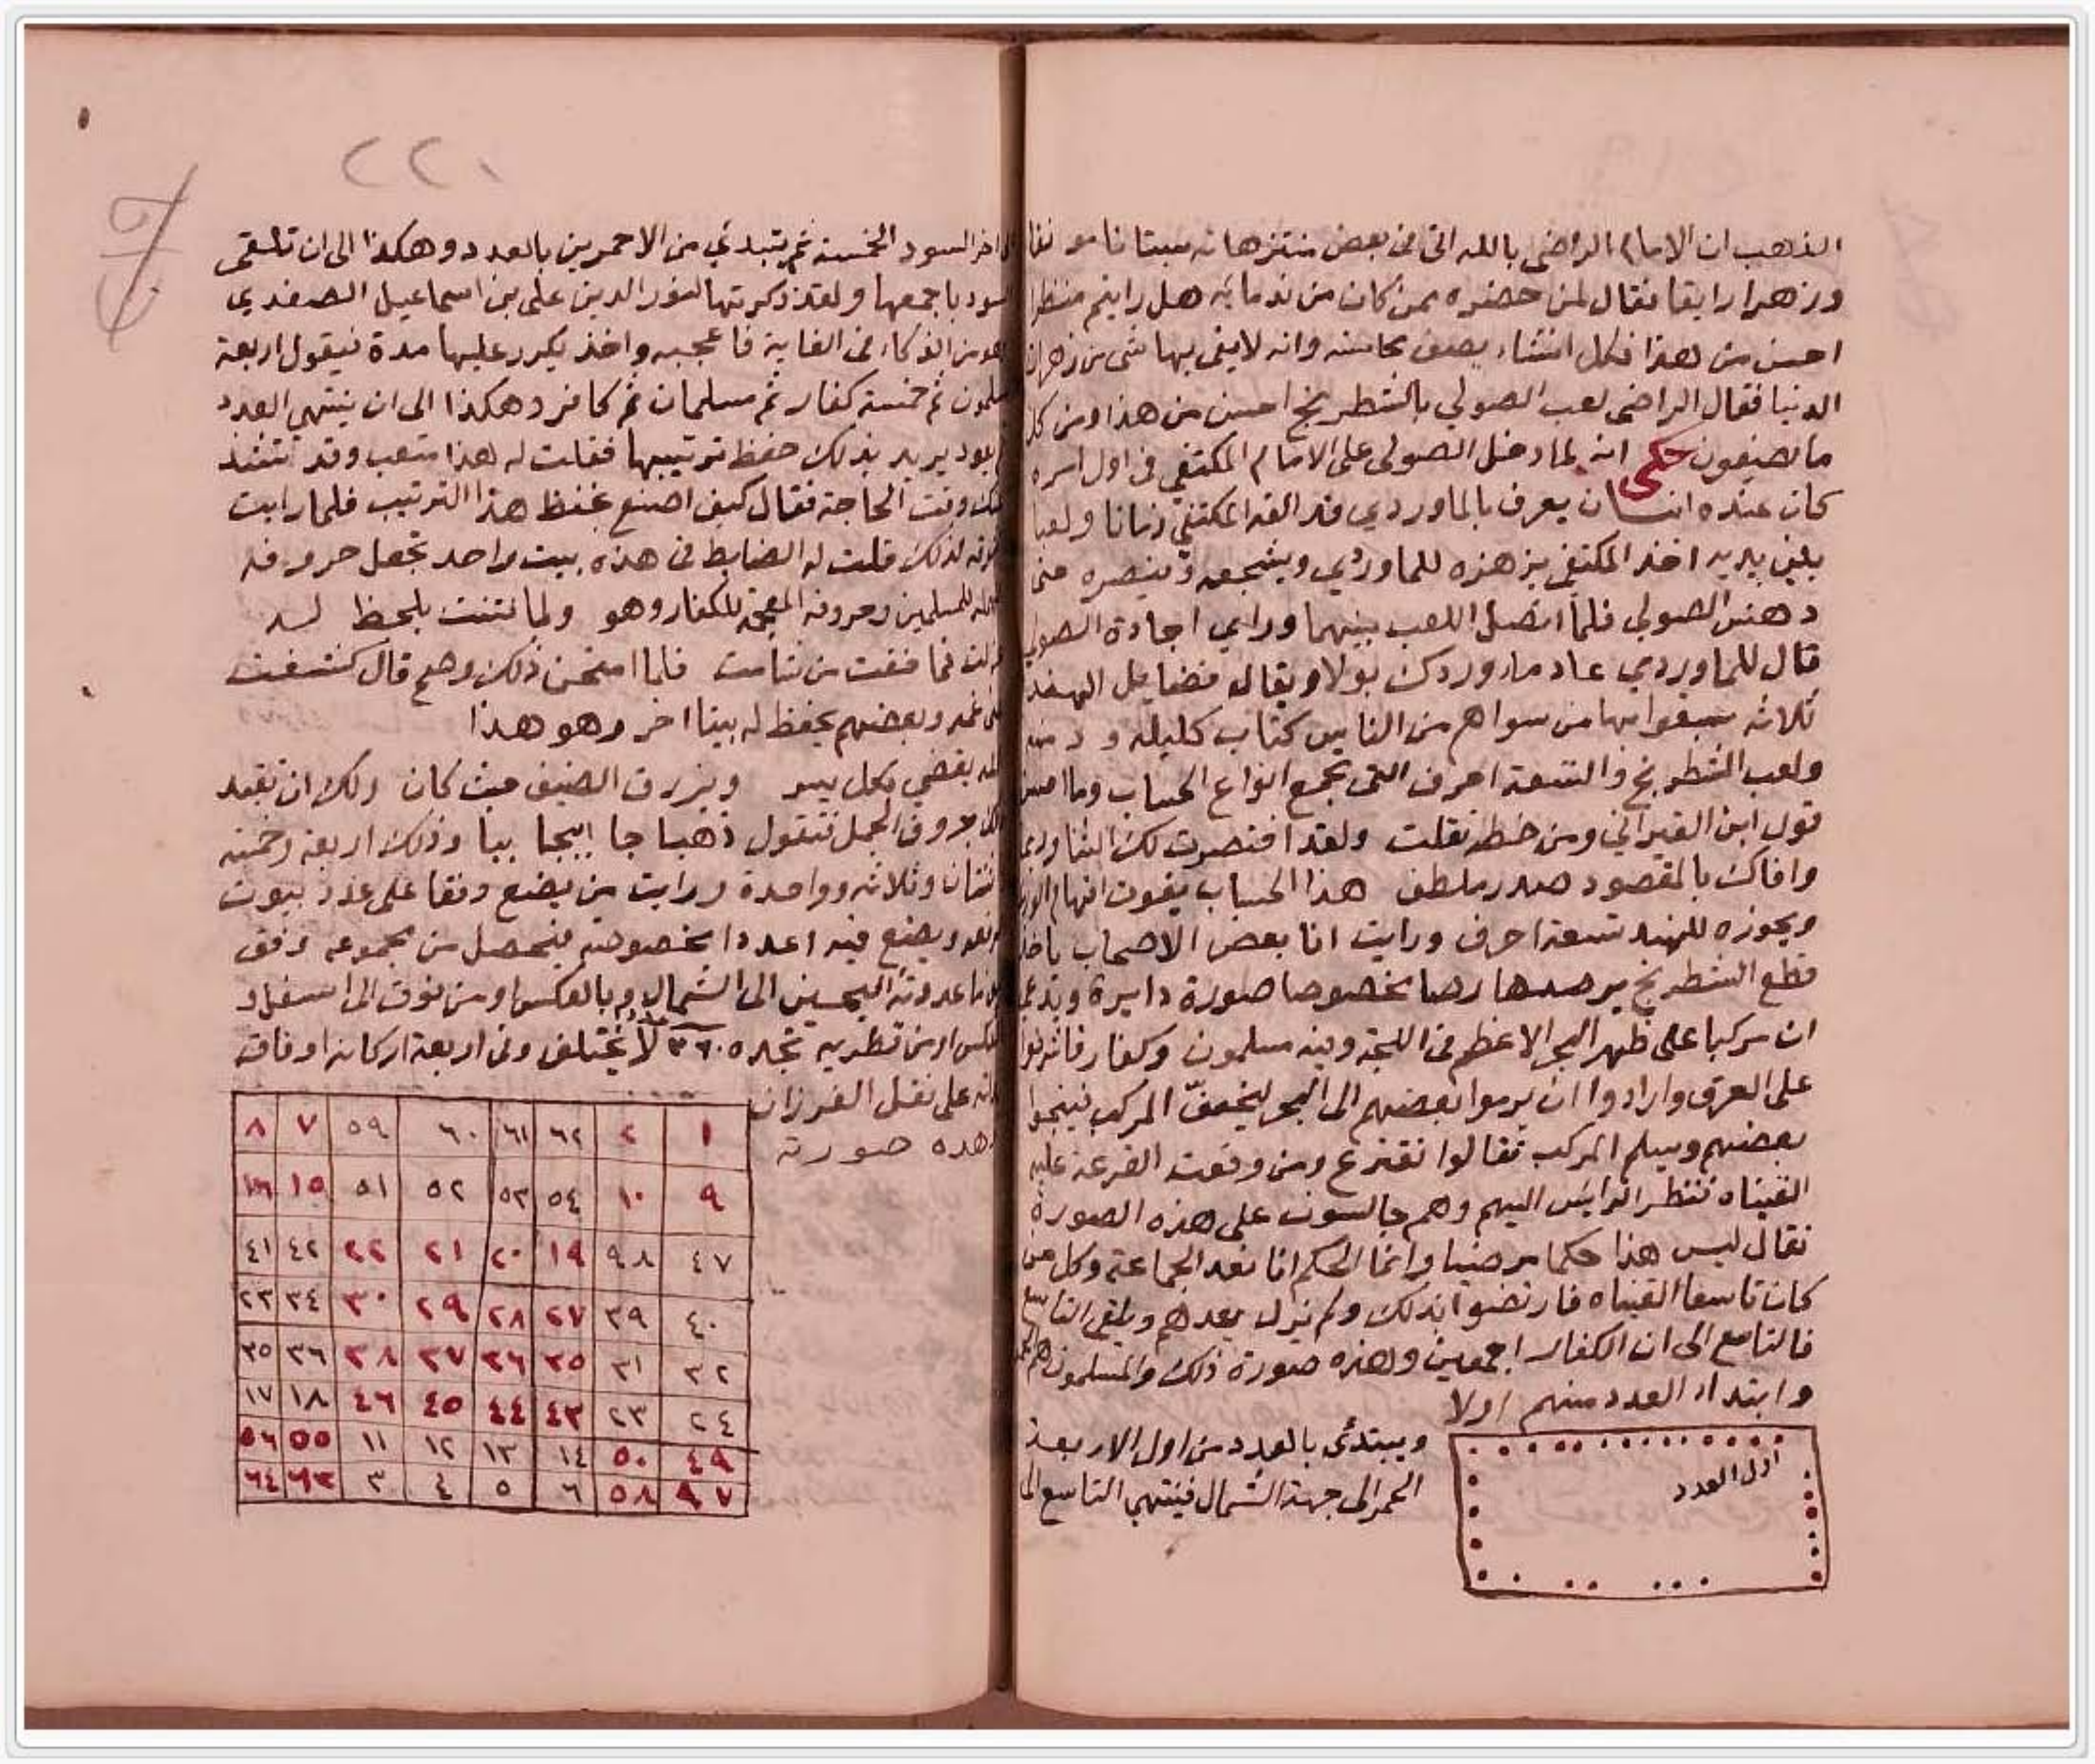 الذهب ان الامام الراضى بالله اتى فى بعض منتزهاته بستانا مونقا
وزهرا رايقا فقال لمن حضره ممن كان من ندمايه هل رايتم منظرا
احسن من هذا فكل انشاء يصف محاسنه وانه لا يفى بها شى من زهرات
الدنيا فقال الراضى لعب الصولي بالشطرنج احسن من هذا ومن كل
ما تصفون حكى انه لما دخل الصولى على الامام المكتفي فى اول امره
كان عنده انسان يعرف بالماوردي قد الفه المكتفي زمانا ولعبا
بين يديه اخذ المكتفي يزهزه للماوردي ويشجعه وينصره حتى
دهش الصولي فلما اتصل اللعب بينهما وراي اجادة الصولي
قال للماوردي عاد ماء وردك بولا ويقال فضايل الهند
ثلاثه سبقوا بها من سواهم من الناس كتاب كليله ودمنه
ولعب الشطرنج والتسعة احرف التى تجمع انواع الحساب وما احسن
قول ابن القيراني ومن خطه نقلت ولقد اقتصرت لك الثنا
وافاك بالمقصود صدر ملطف هذا الحساب يفوت افهام الورى
ويحوزه للهند تسعة احرف ورايت انا بعض الاصحاب ياخذ
قطع الشطرنج يرصها رصا مخصوصا صورة دايرة ويدعى
ان مركبا على ظهر البحر الاعظم فى اللجة وفيه مسلمون وكفار فاشرفوا
على الغرق وارادوا ان يرموا بعضهم الى البحر ليخفّ المركب فينجوا
بعضهم ويسلم المركب فقالوا نقترع ومن وقعت القرعة عليه
القيناه فنظر الرايس اليهم وهم جالسون على هذه الصورة
فقال ليس هذا حكما مرضيا وانما الحكم انا نعد الجماعة وكل من
كان تاسعا القيناه فارتضوا بذلك ولم يزل يعدهم ويلقى التاسع
فالتاسع الى ان الكفار اجمعين وهذه صورة ذلك والمسلمون هم الحمر
وابتداء العدد منهم اولا
ويبتدئ بالعدد من اول الاربعة
الحمر الى جهة الشمال فينتهي التاسع الى
اول العدد
٢٢٠
اخر السود الخمسة ثم يتبدئ من الاحمرين بالعدد وهكذا الى ان تلقى
السود باجمعها ولقد ذكرتها لنور الدين على بن اسماعيل الصفدي
وهو من الذكاء فى الغاية فاعجبه واخذ يكرر عليها مدة فيقول اربعة
مسلمون ثم خمسة كفار ثم مسلمان ثم كافر وهكذا الى ان ينتهي العدد
يريد بذلك حفظ ترتيبها فقلت له هذا متعب وقد
وقت الحاجة فقال كيف اصنع بحفظ هذا الترتيب فلما رايت
لذلك قلت له الضابط فى هذه بيت واحد تجعل حروفه
للمسلمين وحروفه المعجمة للكفار وهو ولما فتنت بلحظ له
فما خفت من شامت فلما امتحن ذلك وصح قال كشفت
وبعضهم يحفظ له بيتا اخر وهو هذا
الله يقضي بكل يسر ويرزق الضيف حيث كان ولك ان تقيد
حروف الجمل فتقول ذهبا جا ابيجا ببا وذلك اربعة وخمسة
اثنان وثلاثه وواحدة ورايت من يضع وفقا على عدد بيوت
ويضع فيه اعدادا مخصوصه يتحصل من مجموعه وفق
ما عددته اليمين الى الشمال وبالعكس او من فوق الى اسفل او
بالعكس او من قطريه تجده ٢٦٠ لا يختلف وفى اربعة اركانه اوفاق
على نقل الفرزان
وهذه صورته
١ ٢ ٦٢ ٦١ ٦٠ ٥٩ ٧ ٨
٩ ١٠ ٥٤ ٥٣ ٥٢ ٥١ ١٥ ١٦
٤٧ ٩٨ ١٩ ٢٠ ٢١ ٢٢ ٤٢ ٤١
٤٠ ٣٩ ٢٧ ٢٨ ٢٩ ٣٠ ٣٤ ٢٣
٣٢ ٣١ ٣٥ ٣٦ ٣٧ ٣٨ ٣٦ ٣٥
٢٤ ٢٣ ٤٣ ٤٤ ٤٥ ٤٦ ١٨ ١٧
٤٩ ٥٠ ١٤ ١٣ ١٢ ١١ ٥٥ ٥٦
٩٧ ٥٨ ٦ ٥ ٤ ٣ ٦٣ ٦٤